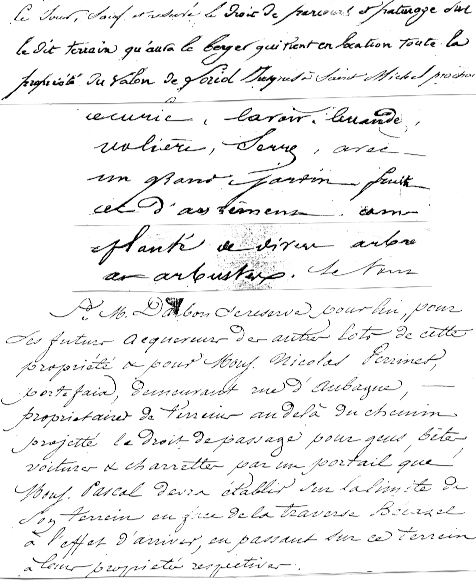 Ce Jour, Sauf et réservé le droit de parcours et paturage sur
le dit terrain qu'aura le berger qui tient en location toute la
propriété du valon de Saint Michel
ecurie, lavoir, buande,
volière, Serre, avec
un grand Jardin fruit
et d'agrément com
planté de divers arbre
et arbustes. le tout
M. Darbon se reserve pour lui, pour
ses futur acquereurs des autres lots de cette
propriété & pour Mons. Nicolas Perrinet,
portefaix, demeurant rue d'Aubagne, —
propriétaires de terreins au delà du chemin
projetté le droit de passage pour gens, bêtes
voitures & charrettes par un portail que
Mons. Pascal devra établir sur la limite de
son terrein en face de la traverse
à l'effet d'arriver, en passant sur ce terrein
à leurs propriétés respectives.